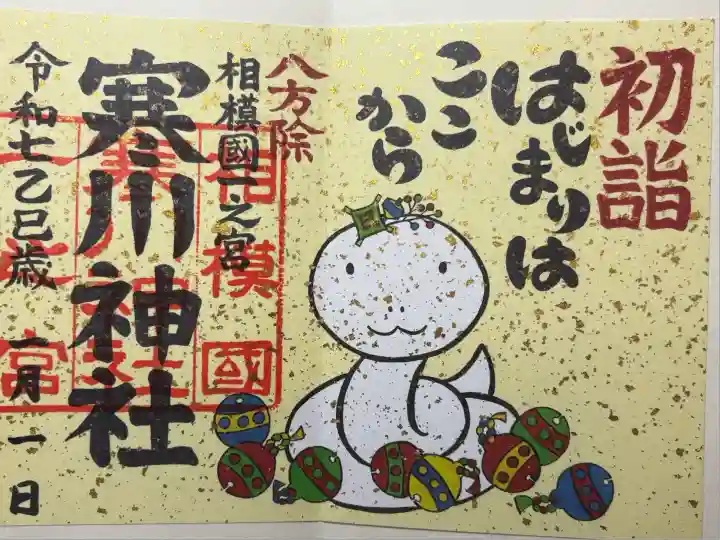 初詣
はじまりは
ここ
から
八方除
相模國一之宮
寒川神社
令和七乙巳歳 一月一日
相模國